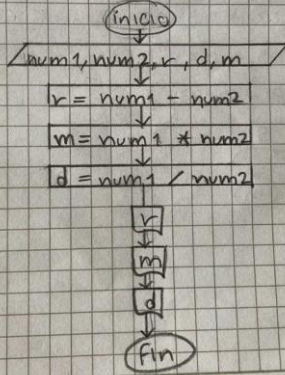 inicio
num1, num2, r, d, m
r = num1 - num2
m = num1 * num2
d = num1 / num2
r
m
d
Fin